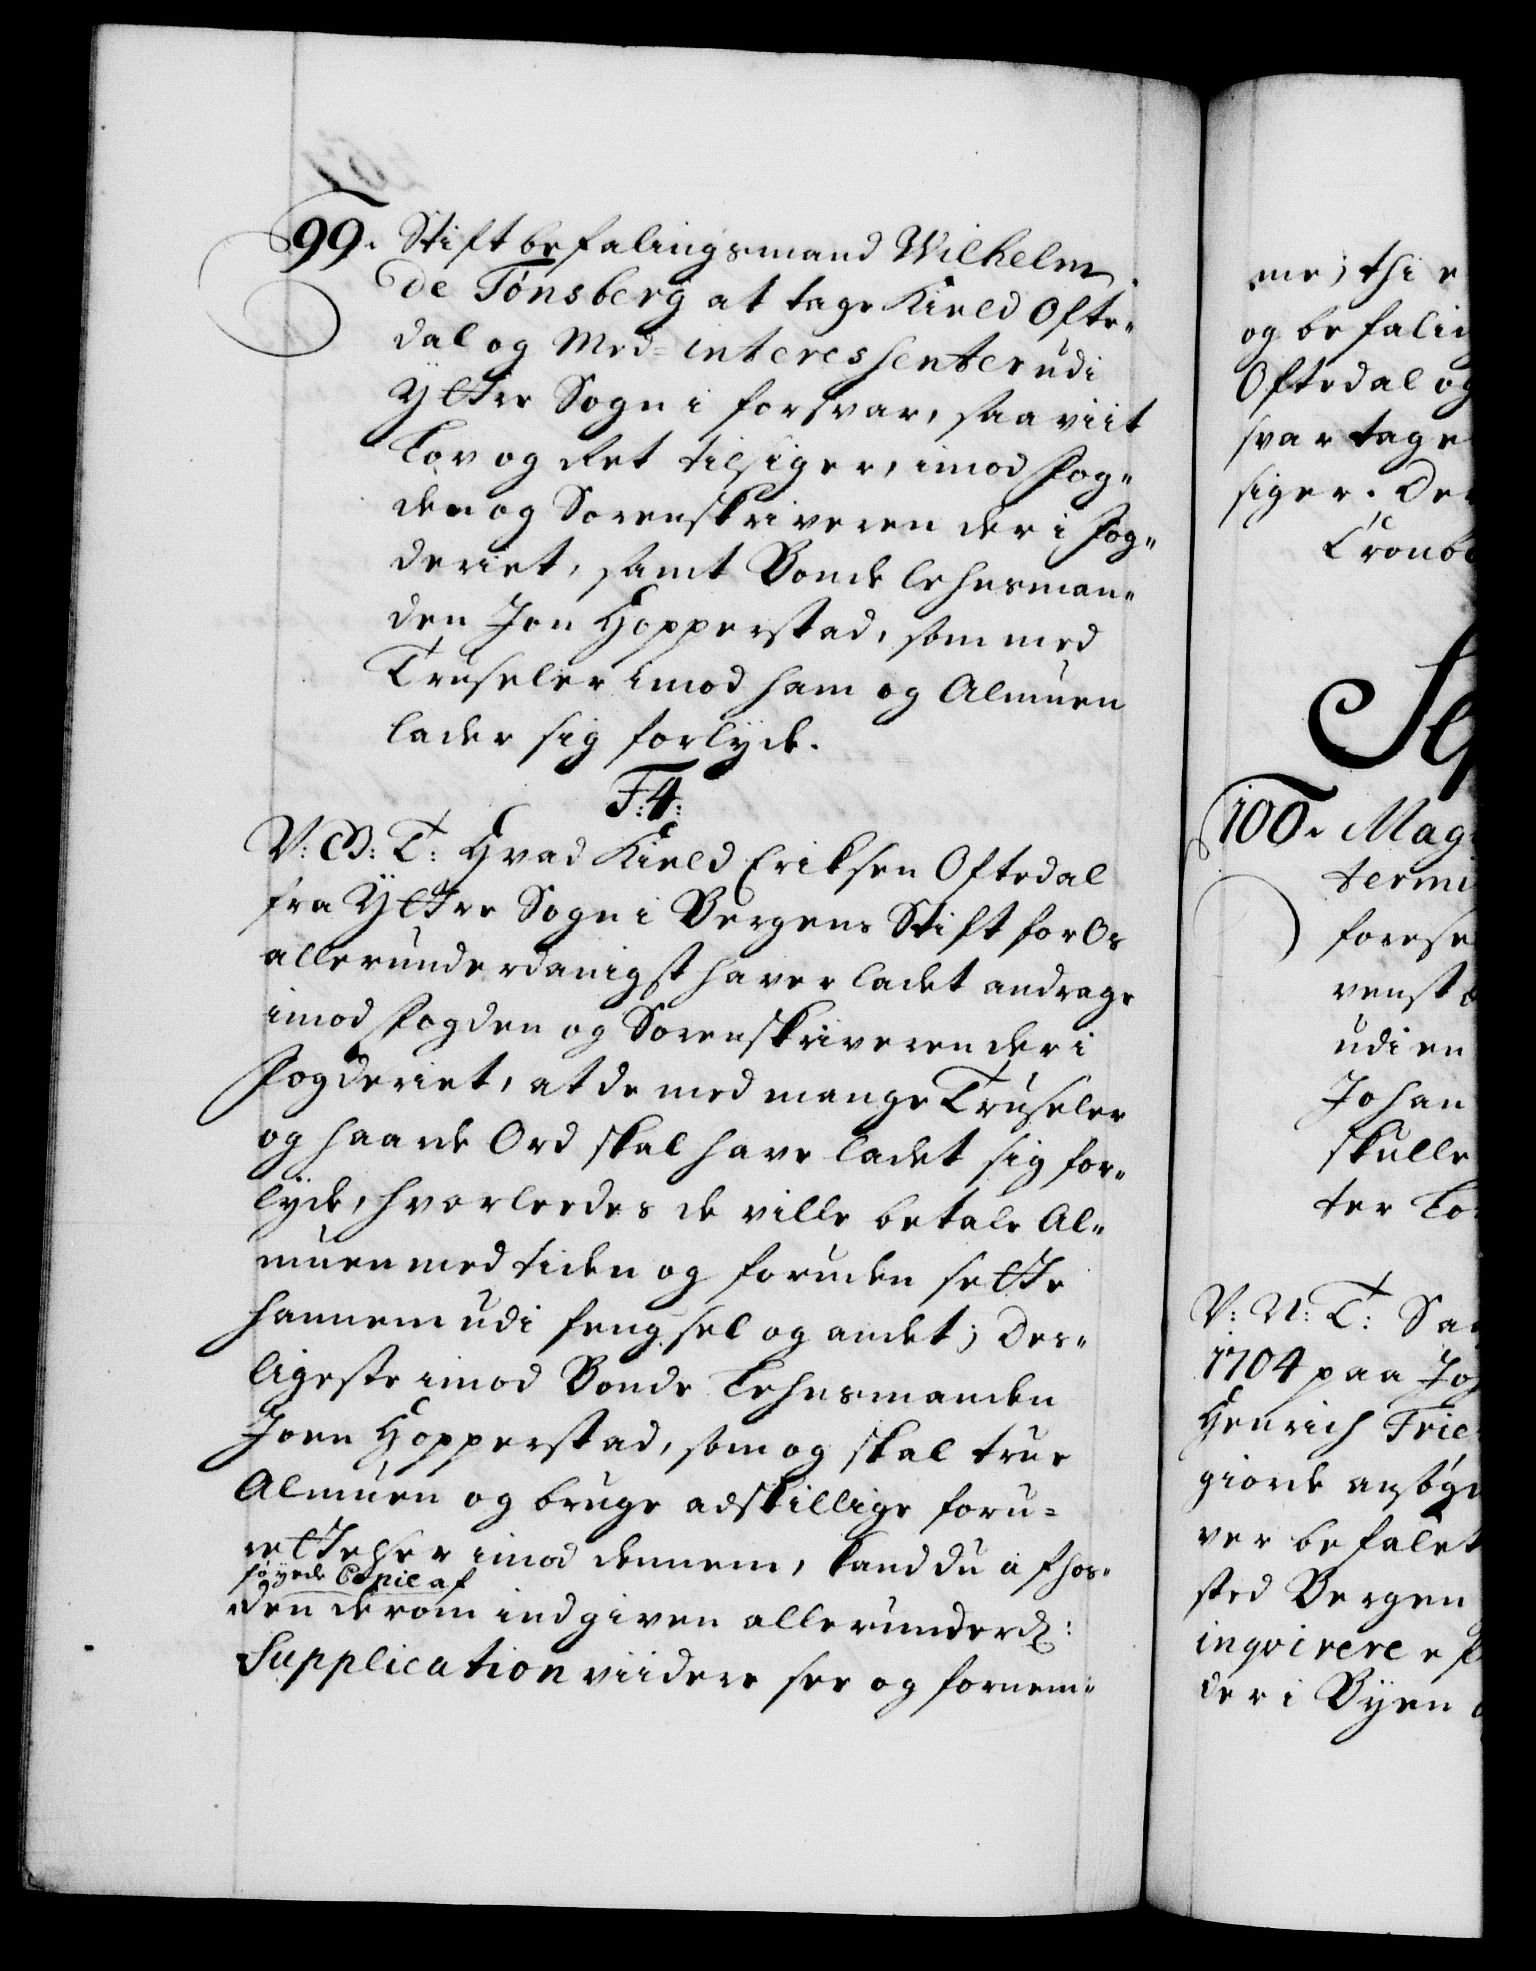 99. Stiftbefalingsmand Wilhelm
de Tønsberg at tage Kield Ofte„
dal og Med-interessenter udi
Yttre Sogn i forsvar, saa viit
Lov og Ret tilsiger, imod Fog„
den og Sorenskriveren der i Fog„
deriet, samt Bonde lehnsman„
den Jon Hopperstad, som med
Truseler imod ham og Almuen
lader sig forlyde.
F:4:
V: G: T: Hvad Kield Eriksen Oftedal
fra Yttre Sogn i Bergens Stift for Os
allerunderdanigst haver ladet andrage
imod Fogden og Sorenskriveren der i
Fogderiet, at de med mange Truseler
og haarde Ord skal have ladet sig for„
lyde, hvorledes de ville betale Al„
muen med tiden og foruden sette
hannem udi fengsel og andet; Des„
ligeste imod Bonde Lehnsmanden
Joen Hopperstad, som og skal true
Almuen og bruge adskillige foru-
rettelser imod dennem, kand du af hos„
føyede Copie af
den derom indgiven allerunderd:
Supplication viidere see og fornem„
me; thi e
og befali
Oftedal og
svar tage
siger. De
Cronb
100. Mag
termi
forese
venst
udi en
Johan
skulle
ter Lo
V: G: T: Sa
1704 paa Jo
Henrich Frie
giorde ansøg
ver befalet
sted Bergen
inqvirere e
der i Byen